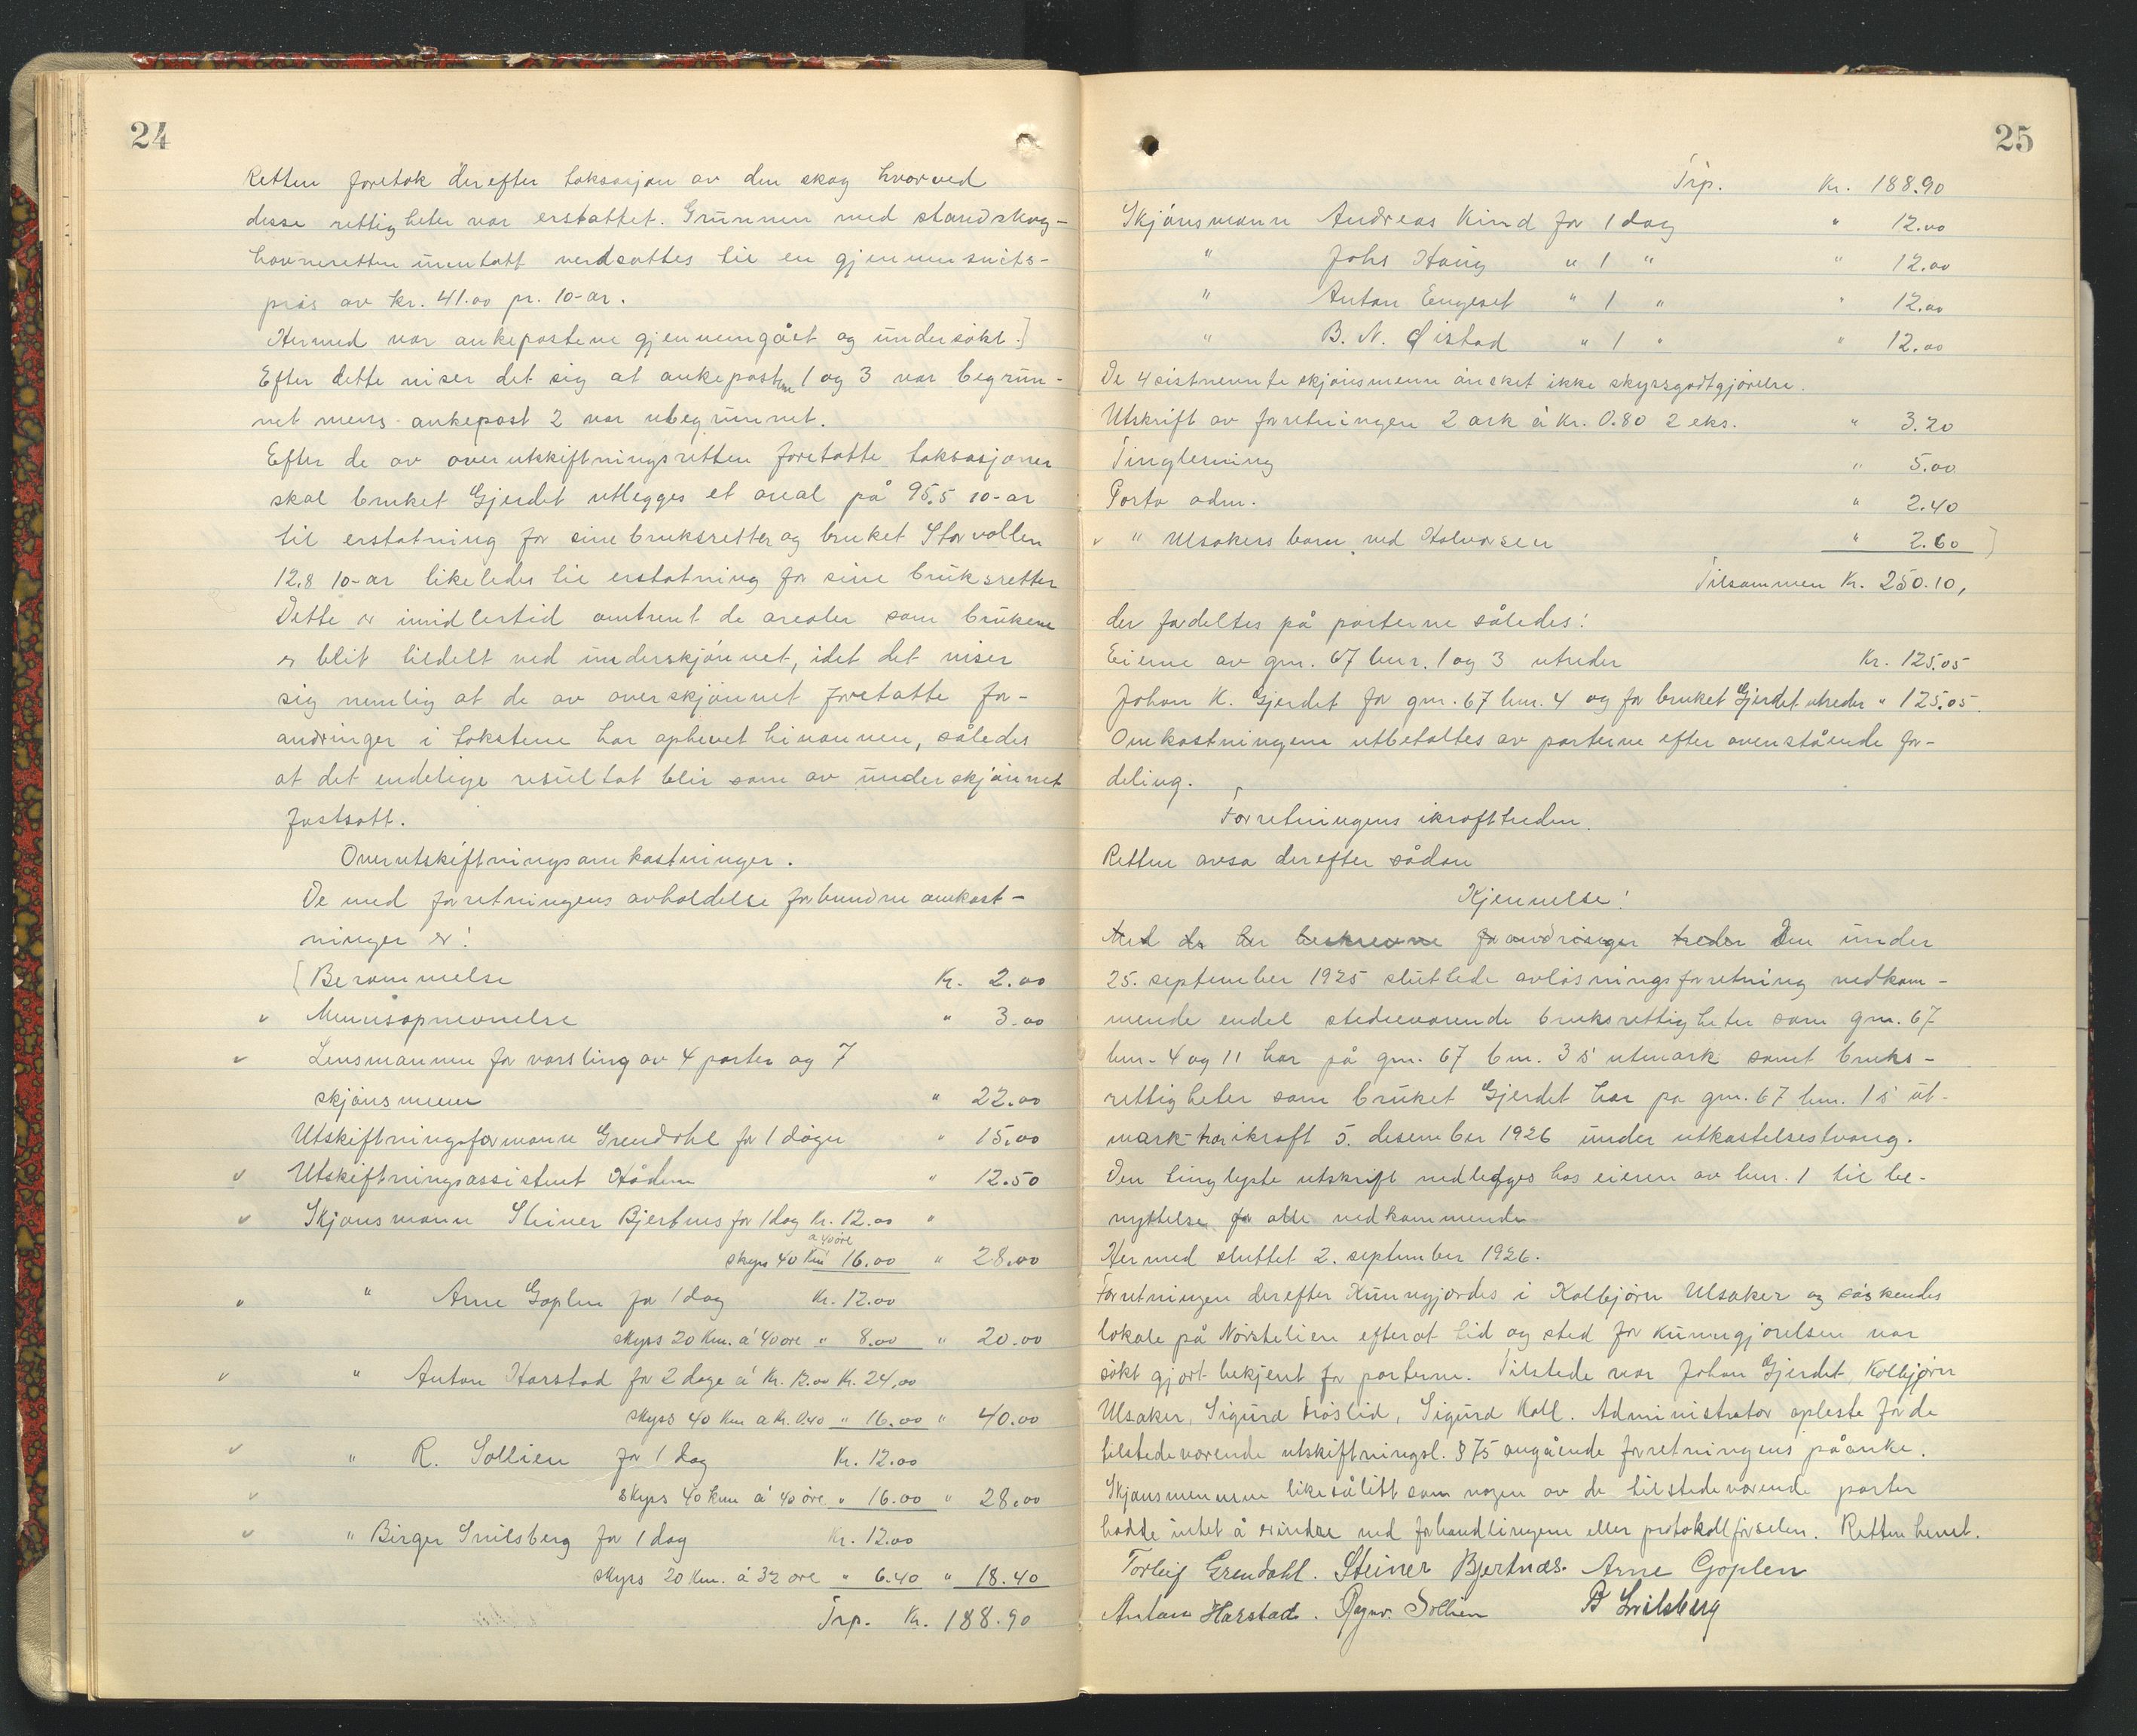 24
Retten foretok derefter taksasjon av den skog hvorved
disse rettigheter var erstattet. Grunnen med standskog -
havneretten unntatt verdsattes til en gjennemsnits-
pris av kr. 41.00 pr. 10-ar.
Hermed var ankepostene gjennemgået og undersökt.]
Efter dette viser det sig at ankepostene 1 og 3 var begrun-
net mens ankepost 2 var ubegrunnet.
Efter de av overutskiftningsretten foretatte taksasjoner
skal bruket Gjerdet utlegges et areal på 95.5 10-ar
til erstatning for sine bruksretter og bruket Storvollen
12.8 10-ar likeledes til erstatning for sine bruksretter
Dette er imidlertid omtrent de arealer som brukene
er blit tildelt ved underskjönnet, idet det viser
sig nemlig at de av overskjönnet foretatte for-
andringer i takstene har ophevet hinannen, således
at det endelige resultat blir som av underskjönnet
fastsatt.
Overutskiftningsomkostninger.
De med forretningens avholdelse forbundne omkost-
ninger er:
[Berammelse Kr. 2.00
v Mennsopnevnelse " 3.00
v Lensmannen for varsling av 4 parter og 7
skjönsmenn " 22.00
Utskiftningsformann Grendahl for 1 döger " 15.00
v Utskiftningsassistent Hådem " 12.50
v Skjönsmann Steiner Bjertnes for 1 dag Kr. 12.00 "
a 40 öre
skyss 40 Km 16.00 " 28.00
v " Arne Goplen for 1 dag Kr. 12.00
skyss 20 Km. á 40 öre " 8.00 " 20.00
v " Anton Harstad for 2 dage á Kr. 12.00 Kr. 24,00
skyss 40 Km a Kr. 0.40 " 16.00 " 40.00
v " R. Sollien for 1 dag Kr. 12.00
skyss 40 km á 40 öre " 16.00 " 28.00
v
v " Birger Snilsberg for 1 dag Kr. 12.00
skyss 20 Km. á 32 öre " 6.40 " 18.40
Trp. Kr. 188.90
25
Trp. Kr. 188.90
Skjönsmann Andreas Kind for 1 dag " 12.00
" Johs Haug " 1 " " 12.00
" Anton Engeset " 1 " " 12.00
" B. N. Øistad " 1 " " 12.00
De 4 sistnevnte skjönsmenn önsket ikke skyssgodtgjörelse.
Utskrift av forretningen 2 ark á Kr. 0.80 2 eks. " 3.20
Tinglesning " 5.00
Porto adm. " 2.40
v " Ulsakers barn ved Halvorsen " 2.60 ]
Tilsammen Kr. 250.10,
der fordeltes på parterne således:
Eierne av gnr. 67 bnr. 1 og 3 utreder Kr. 125.05
Johan K. Gjerdet for gnr. 67 bnr. 4 og for bruket Gjerdet utreder " 125.05.
Omkostningene utbetaltes av parterne efter ovenstående for-
deling.
Forretningens ikrafttreden.
Retten avsa derefter sådan
Kjennelse:
Med de her beskrevne forandringer treder Den under
25. september 1925 sluttede avlösningsforretning vedkom-
mende endel stedsevarende bruksrettigheter som gnr. 67
bnr. 4 og 11 har på gnr. 67 bnr. 3's utmark samt bruks-
rettigheter som bruket Gjerdet har på gnr. 67 bnr. 1's ut-
mark trær ikraft 5. desember 1926 under utkastelsestvang.
Den tinglyste utskrift nedlegges hos eieren av bnr. 1 til be-
nyttelse for alle vedkommende
Hermed sluttet 2. september 1926.
Forretningen derefter Kunngjordes i Kolbjörn Ulsaker og söskendes
lokale på Nörstelien efterat tid og sted for kunngjörelsen var
sökt gjort bekjent for parterne. Tilstede var Johan Gjerdet, Kolbjörn
Ulsaker, Sigurd Fröslid, Sigurd Kall. Administrator opleste for de
tilstedeværende utskiftningsl. § 75 angående forretningens påanke.
Skjönsmennene likesålitt som nogen av de tilstedeværende parter
hadde intet å erindre ved forhandlingene eller protokollförselen. Retten hevet.
Torleif Grendahl. Steiner Bjertnæs. Arne Goplen
Anton Harstad. Ragnv. Sollien B Snilsberg